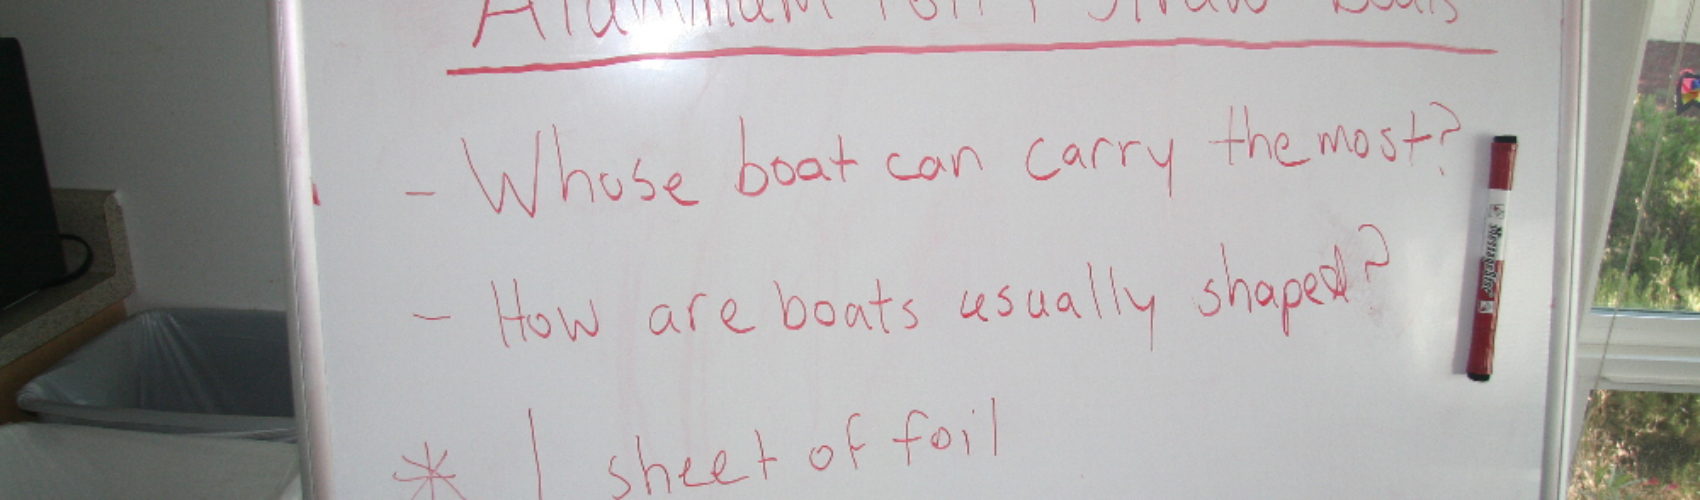 Aluminum Foil + Straw Boats
- Whose boat can carry the most?
- How are boats usually shaped?
* 1 sheet of foil